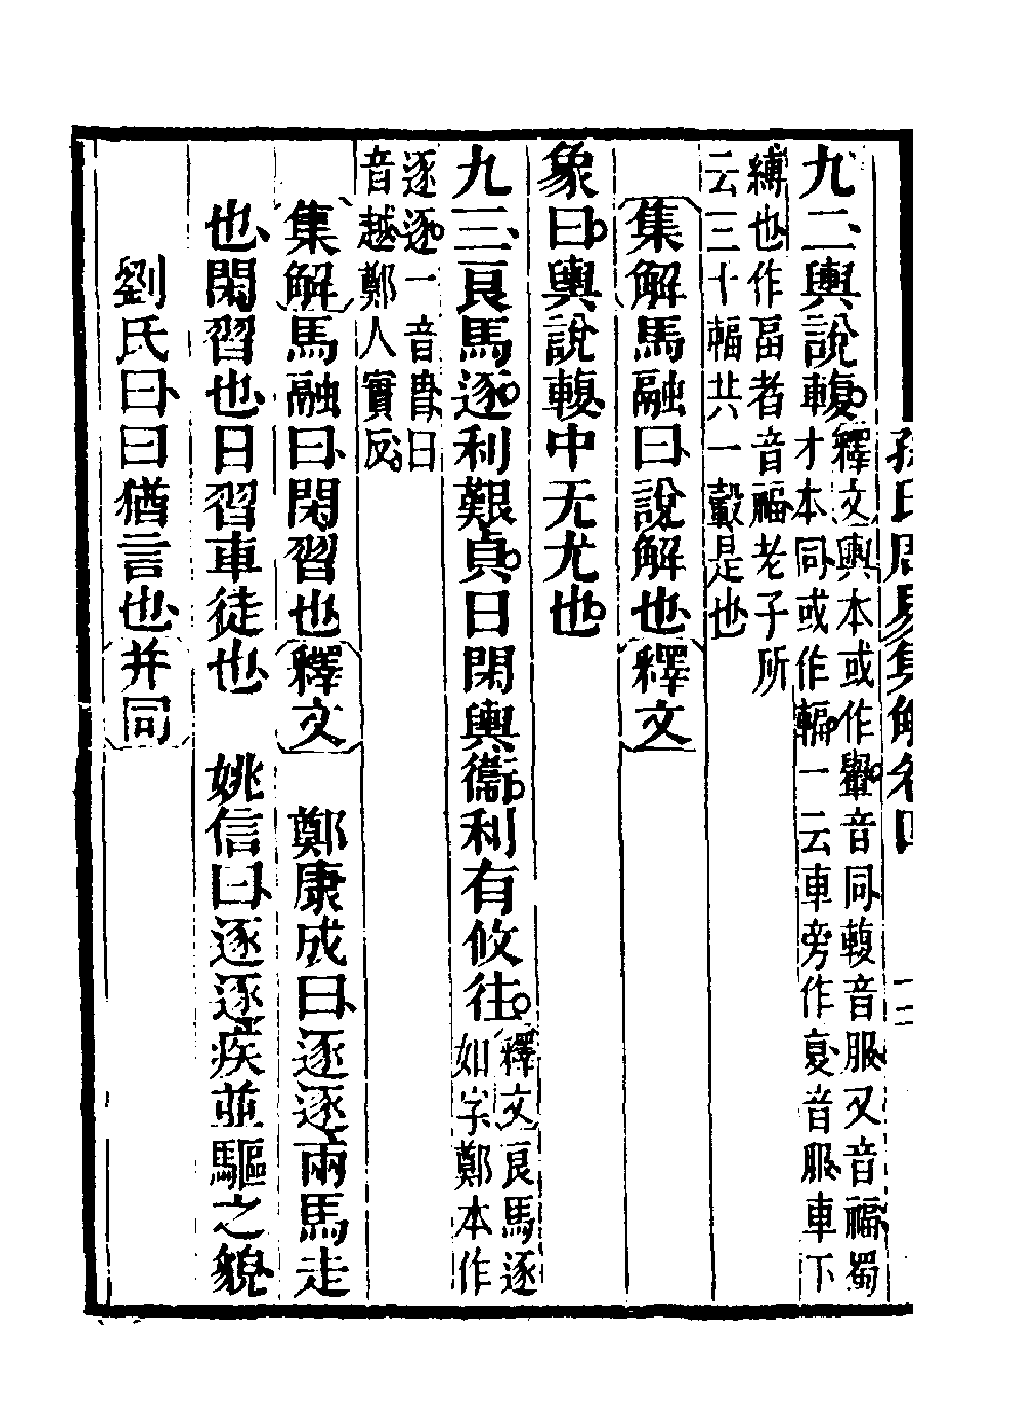 孫氏周易集解卷四 十二
九二、輿說輹。釋文輿本或作轝。音同輹音服、又音福、蜀
才本同或作輻。一云車旁作复、音服、車下
縛也、作畐者音福、老子所
云三十輻共一轂是也
集解馬融曰、說解也、釋文
象曰。輿說輹、中无尤也。
九三、良馬逐。利艱貞。日閑輿衞。利有攸往。釋文良馬逐
如字鄭本作
逐逐。一音冑曰
音越、鄭人實反。
集解馬融曰、閑習也釋文 鄭康成曰、逐逐、兩馬走
也、閑習也、日習車徒也、 姚信曰、逐逐、疾並驅之貌、
劉氏曰、曰猶言也、并同